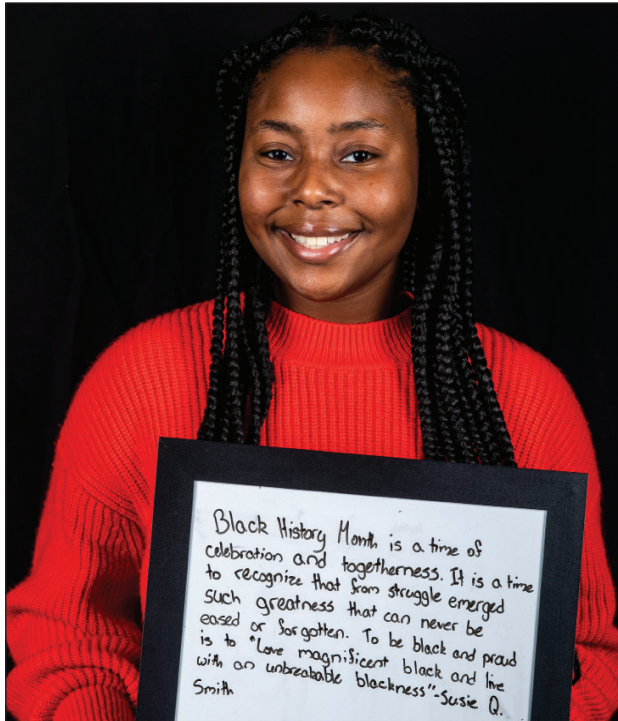 Black History Month is a time of
celebration and togetherness. It is a time
to recognize that from struggle emerged
such greatness that can never be
eased or forgotten. To be black and proud
is to "Love magnificent black and live
with an unbreabable blackness"-Susie Q.
Smith